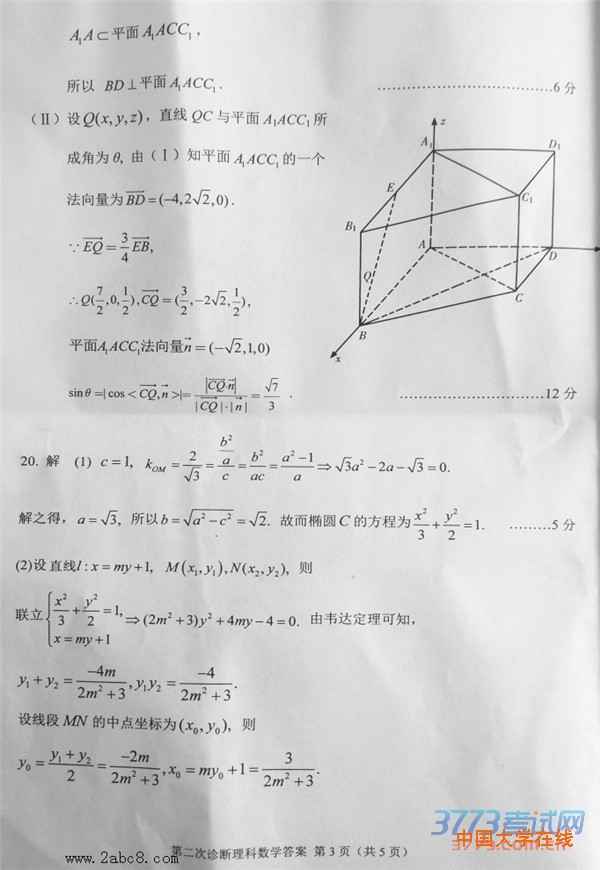 A₁A⊂平面A₁ACC₁,
所以 BD⊥平面A₁ACC₁. ……………………………6分
(Ⅱ)设Q(x,y,z), 直线QC与平面A₁ACC₁所
成角为θ, 由(Ⅰ)知平面A₁ACC₁的一个
法向量为\overrightarrow{BD}=(-4,2√2,0).
∵\overrightarrow{EQ}=\frac{3}{4}\overrightarrow{EB},
∴Q(\frac{7}{2},0,\frac{1}{2}),\overrightarrow{CQ}=(\frac{3}{2},-2√2,\frac{1}{2}),
平面A₁ACC₁法向量\vec{n}=(-√2,1,0)
sinθ=|cos<\overrightarrow{CQ},\vec{n}>|=\frac{|\overrightarrow{CQ}·\vec{n}|}{|\overrightarrow{CQ}|·|\vec{n}|}=\frac{√7}{3}. ……………………………12分
z
A₁
D₁
E
C₁
B₁
A
D
Q
C
B
x
20. 解 (1) c=1, k_{OM}=\frac{2}{√3}=\frac{\frac{b²}{a}}{c}=\frac{b²}{ac}=\frac{a²-1}{a}⇒√3a²-2a-√3=0.
解之得, a=√3, 所以b=\sqrt{a²-c²}=√2. 故而椭圆C的方程为\frac{x²}{3}+\frac{y²}{2}=1. ………5分
(2)设直线l:x=my+1, M(x₁,y₁),N(x₂,y₂), 则
联立\begin{cases}\frac{x²}{3}+\frac{y²}{2}=1,\\x=my+1\end{cases}⇒(2m²+3)y²+4my-4=0. 由韦达定理可知,
y₁+y₂=\frac{-4m}{2m²+3},y₁y₂=\frac{-4}{2m²+3}.
设线段MN的中点坐标为(x₀,y₀), 则
y₀=\frac{y₁+y₂}{2}=\frac{-2m}{2m²+3},x₀=my₀+1=\frac{3}{2m²+3}.
3773考试网
中国大学在线
3773.com.cn
第二次诊断理科数学答案 第3页(共5页)
www.2abc8.com